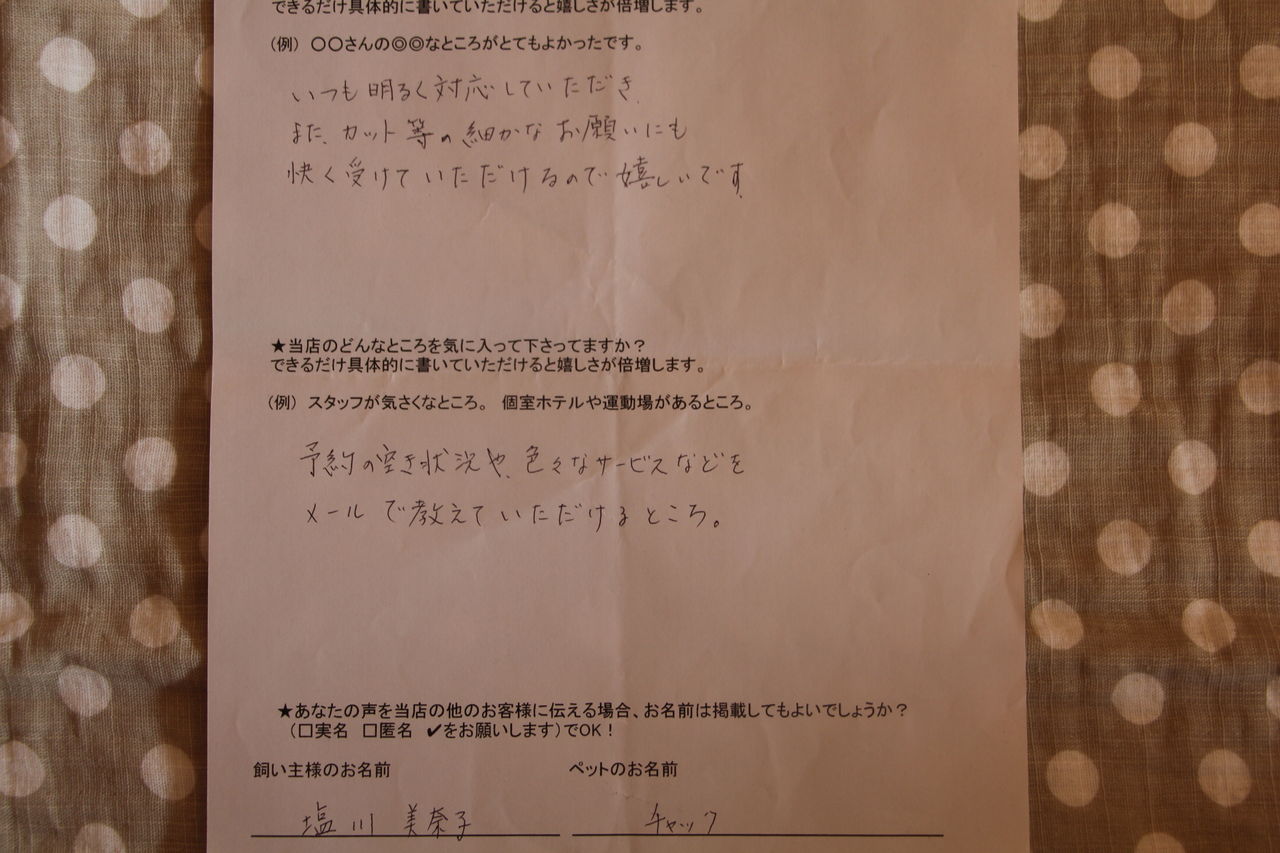 できるだけ具体的に書いていただけると嬉しさが倍増します。
（例）　〇〇さんの◎◎なところがとてもよかったです。
いつも明るく対応していただき、
また、カット等の細かなお願いにも
快く受けていただけるので嬉しいです。
★当店のどんなところを気に入って下さってますか？
できるだけ具体的に書いていただけると嬉しさが倍増します。
（例）　スタッフが気さくなところ。　個室ホテルや運動場があるところ。
予約の空き状況や、色々なサービスなどを
メールで教えていただけるところ。
★あなたの声を当店の他のお客様に伝える場合、お名前は掲載してもよいでしょうか？
（□実名　□匿名　✔をお願いします）でOK！
飼い主様のお名前　ペットのお名前
塩川　美奈子　チャック